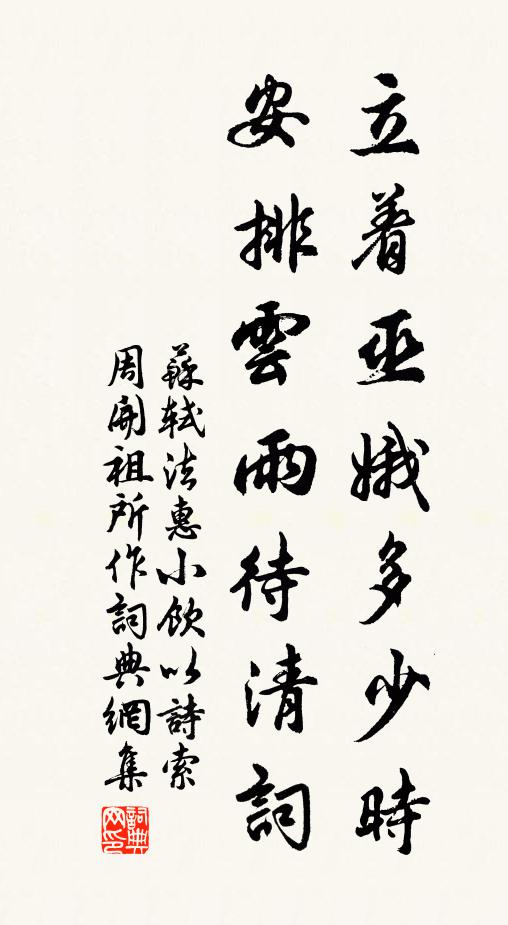 立着巫娥多少時
安排雲雨待清詞
蘇軾法惠小飲以詩索
周開祖所作詞典網集
詞典
网印